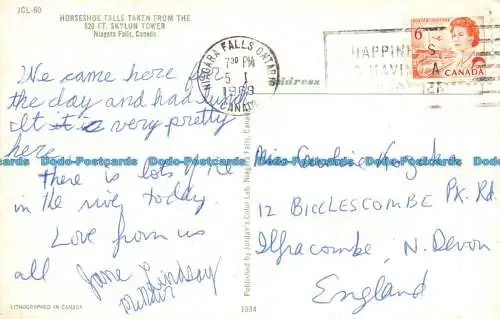 JCL-60
HORSESHOE FALLS TAKEN FROM THE
520 FT. SKYLON TOWER
Niagara Falls, Canada
We came here for
the day and had
It is very pretty
here.
There is lots of ice
in the river today.
Love from us
all Jane Lindsay
NIAGARA FALLS ONTARIO
7 30 PM
5 I
CANADA
HAPPINESS
HAVING A
POSTES POSTAGE
6
CANADA
Address
Miss
12 BICCLESCOMBE PK. Rd.
Ilfracombe, N. Devon
England
Published by Jordan's Color Lab, Niagara Falls, Canada
LITHOGRAPHED IN CANADA
1034
Dodo-Postcards Dodo-Postcards Dodo-Postcards Dodo-Postcards Dodo-Postcards